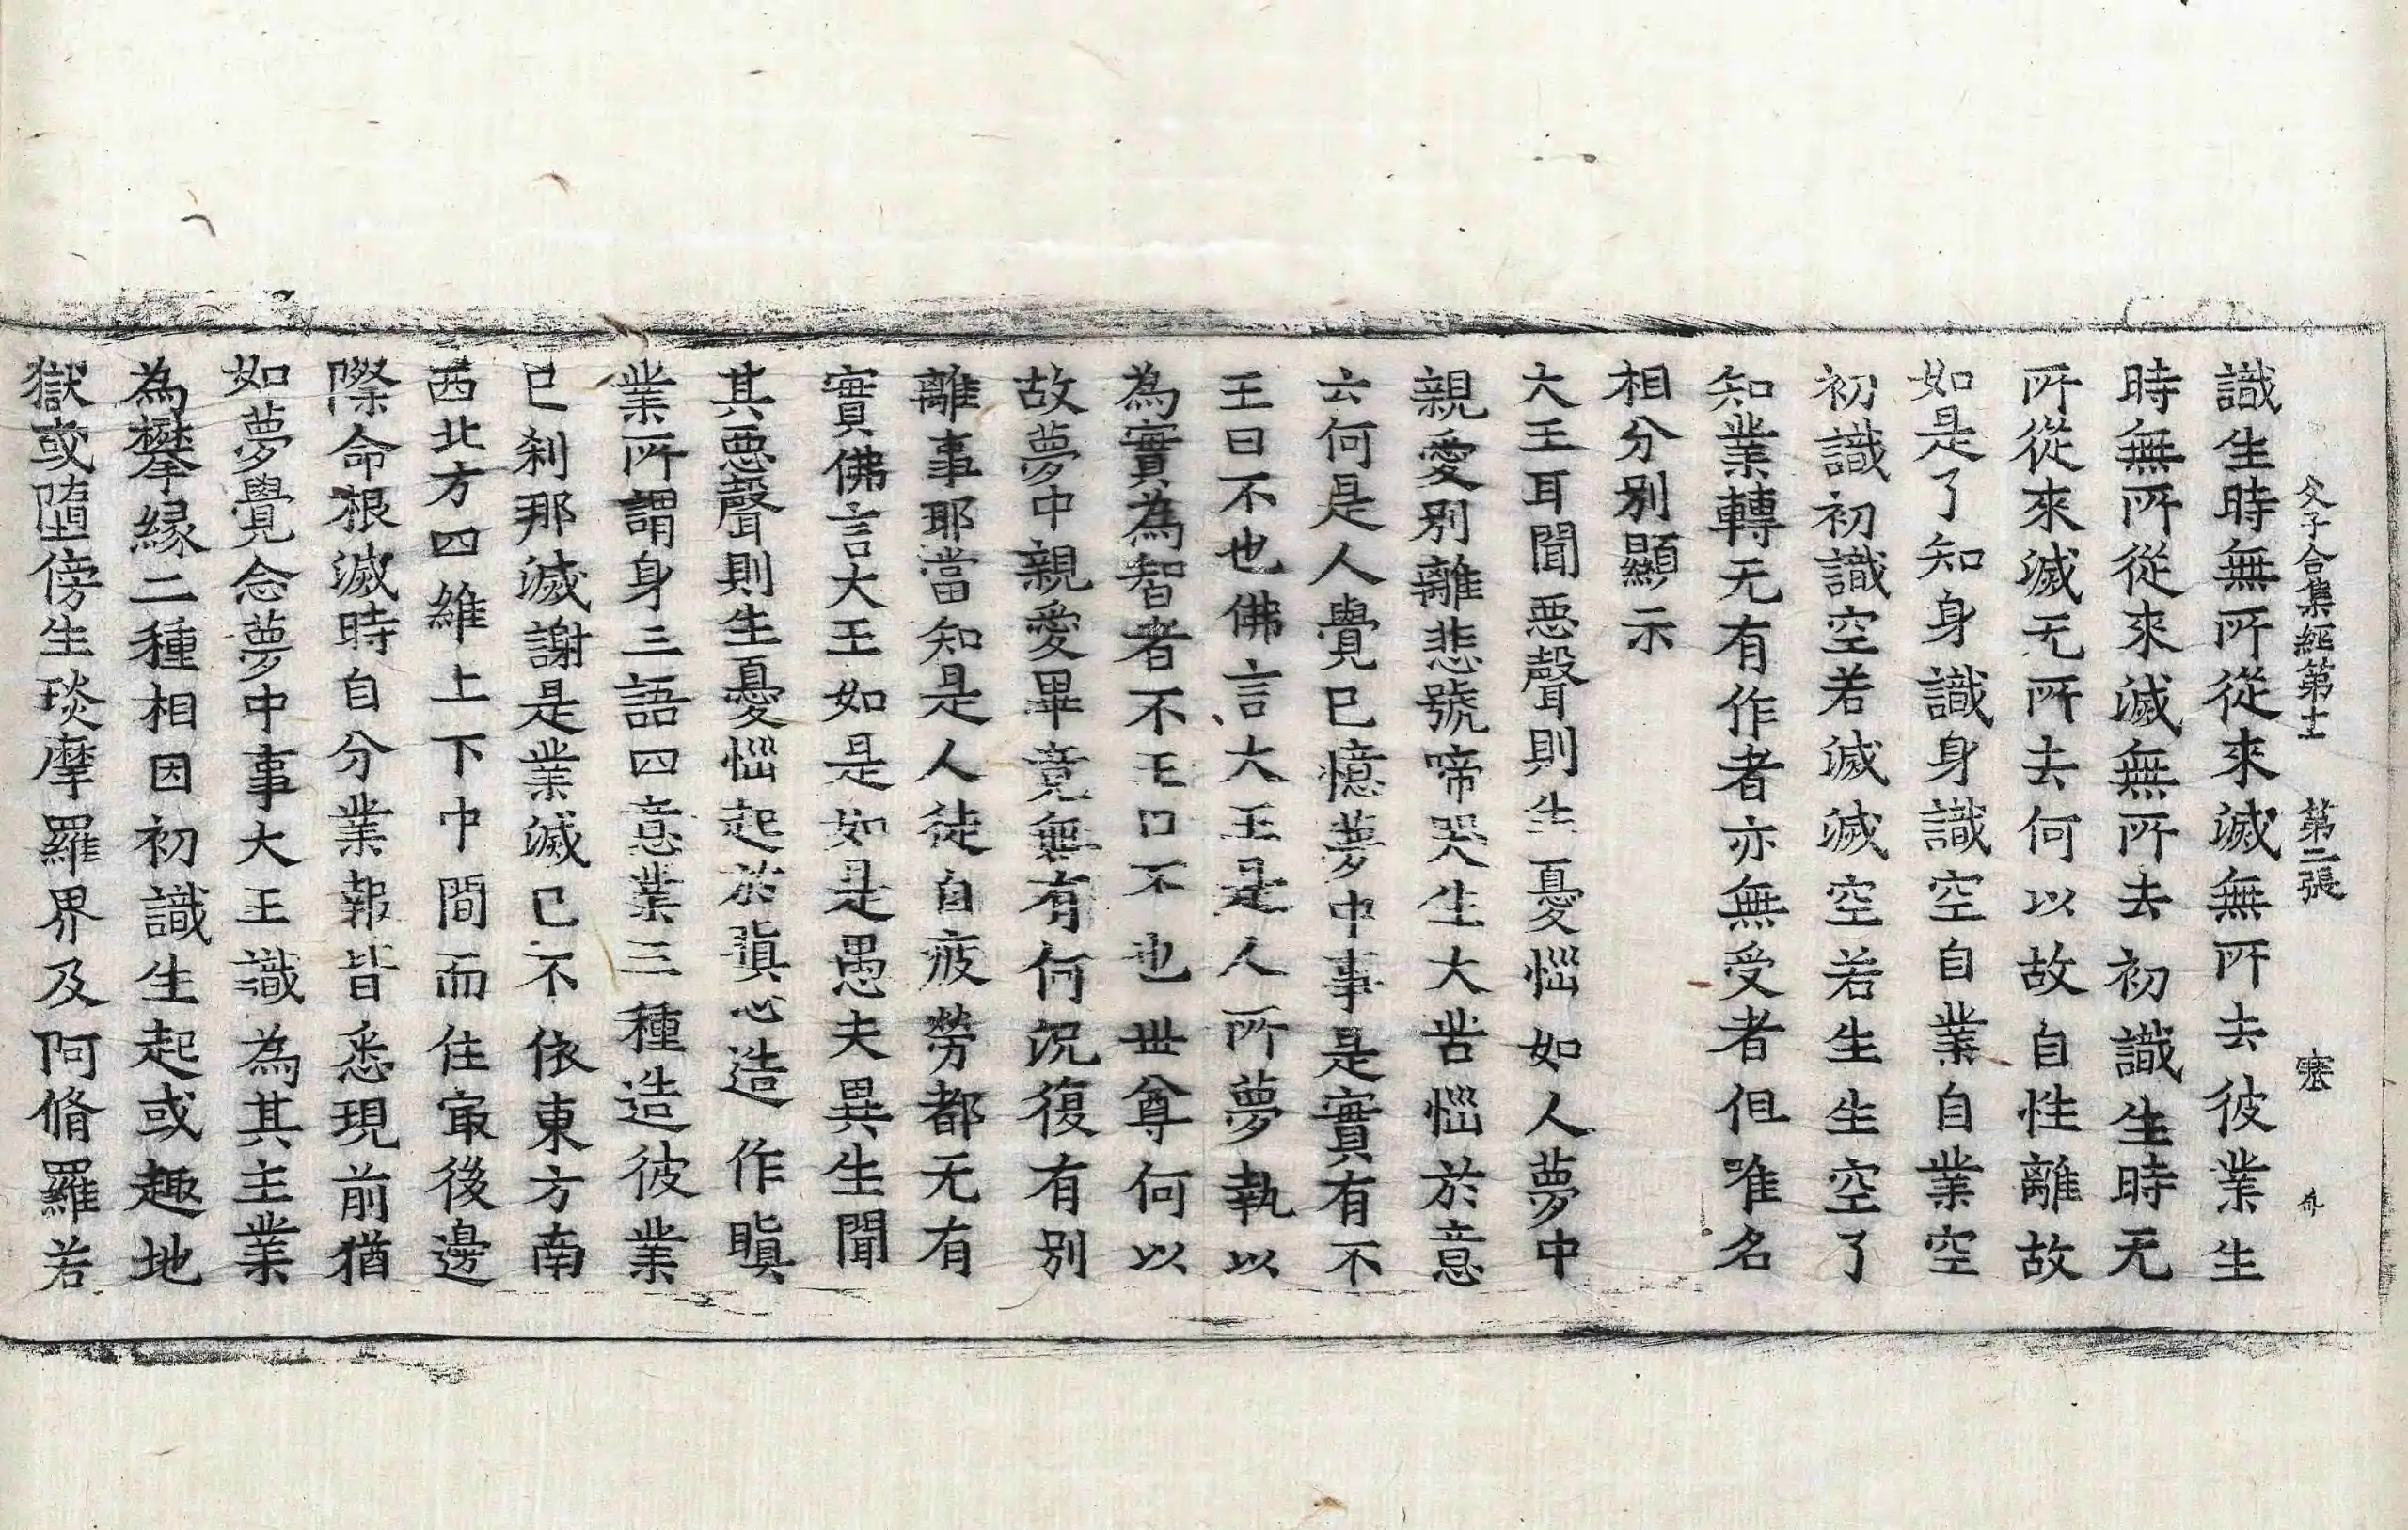 父子合集經第十七　第二張　塞
識生時無所從來滅無所去彼業生
時無所從來滅無所去初識生時无
所從來滅无所去何以故自性離故
如是了知身識身識空自業自業空
初識初識空若滅滅空若生生空了
知業轉无有作者亦無受者但唯名
相分別顯示
大王耳聞惡聲則生憂惱如人夢中
親愛別離悲號啼哭生大苦惱於意
云何是人覺已憶夢中事是實有不
王曰不也佛言大王是人所夢執以
為實為智者不王曰不也世尊何以
故夢中親愛畢竟無有何況復有別
離事耶當知是人徒自疲勞都无有
實佛言大王如是如是愚夫異生聞
其惡聲則生憂惱起於瞋心造作瞋
業所謂身三語四意業三種造彼業
已刹那滅謝是業滅已不依東方南
西北方四維上下中間而住㝡後邊
際命根滅時自分業報皆悉現前猶
如夢覺念夢中事大王識為其主業
為攀緣二種相因初識生起或趣地
獄或墮傍生琰摩羅界及阿脩羅若